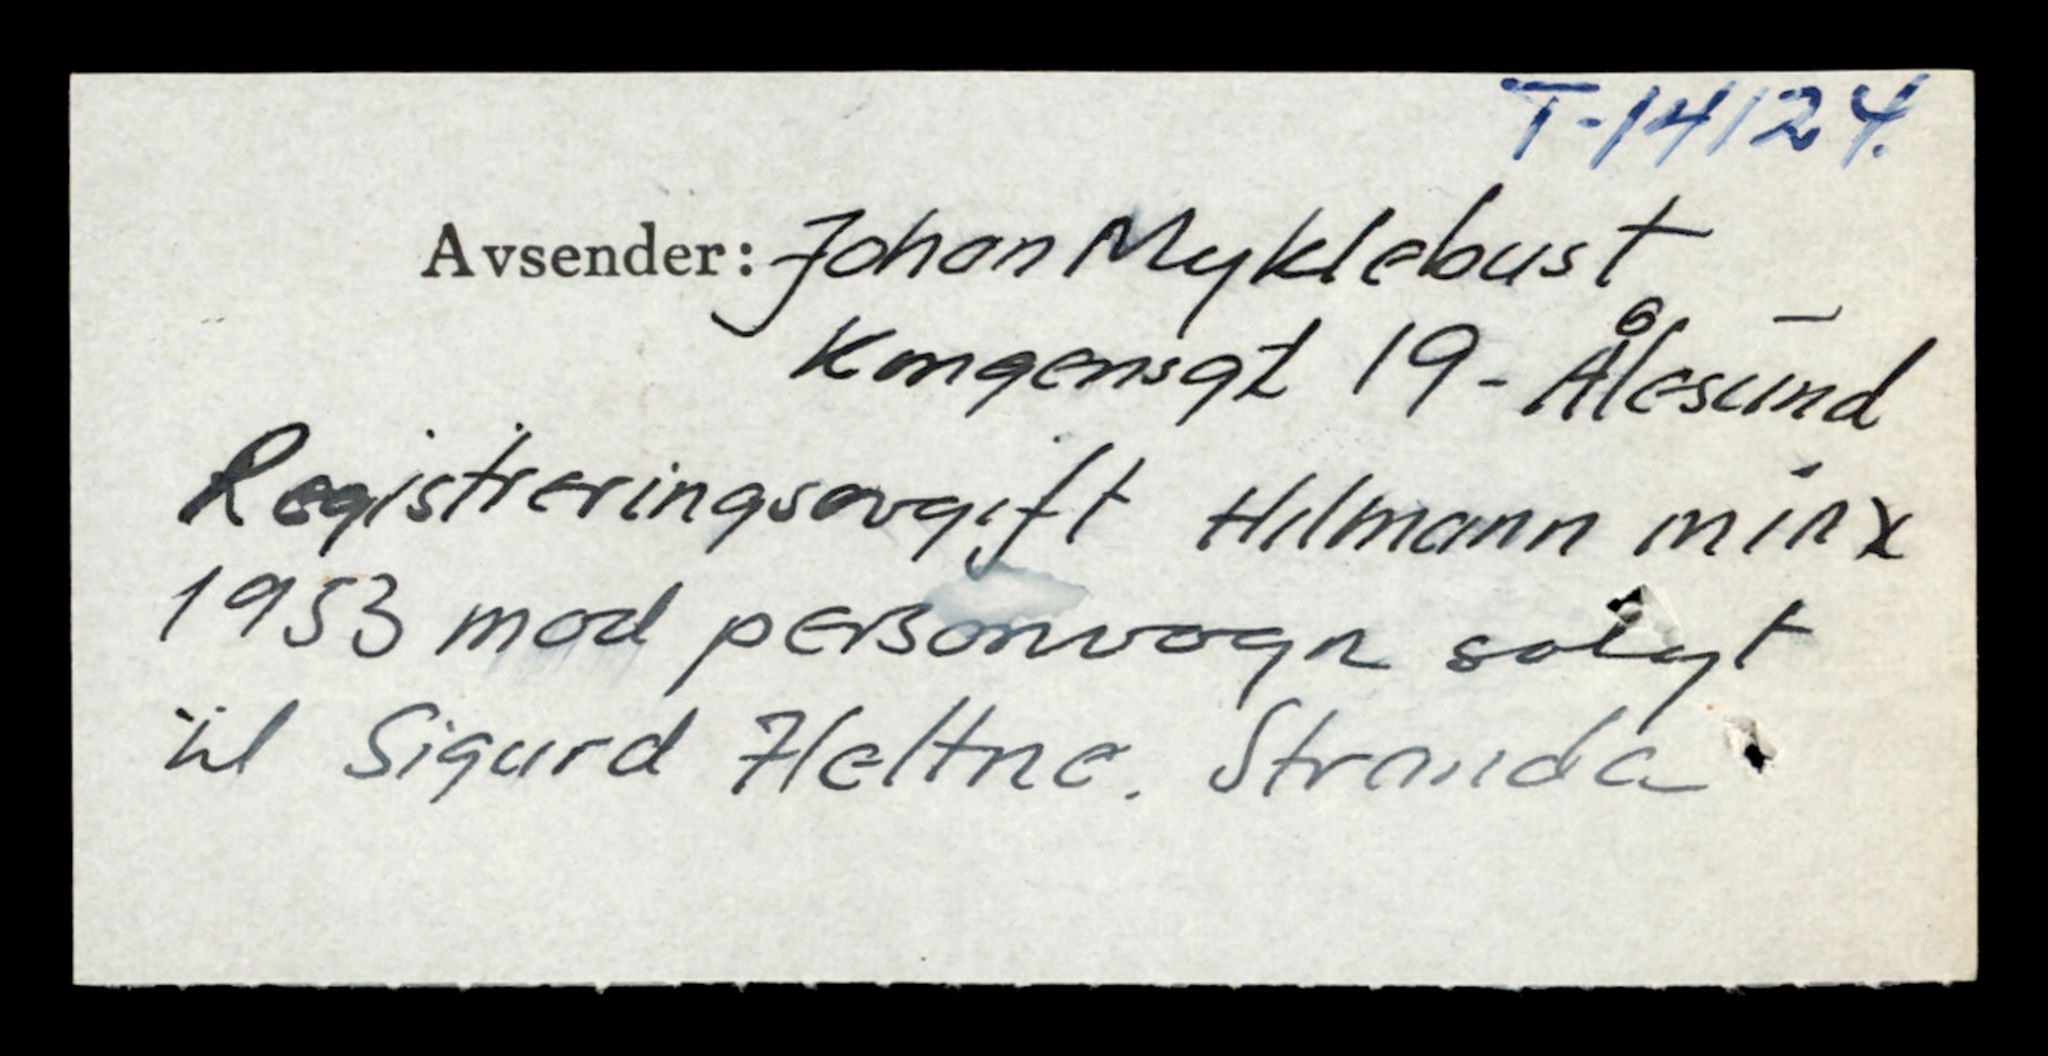 T-14124.
Avsender: Johan Myklebust
Kongensgt 19 - Ålesund
Registreringsavgift Hilmann minx
1953 mod personvogn solgt
til Sigurd Heltne. Stranda